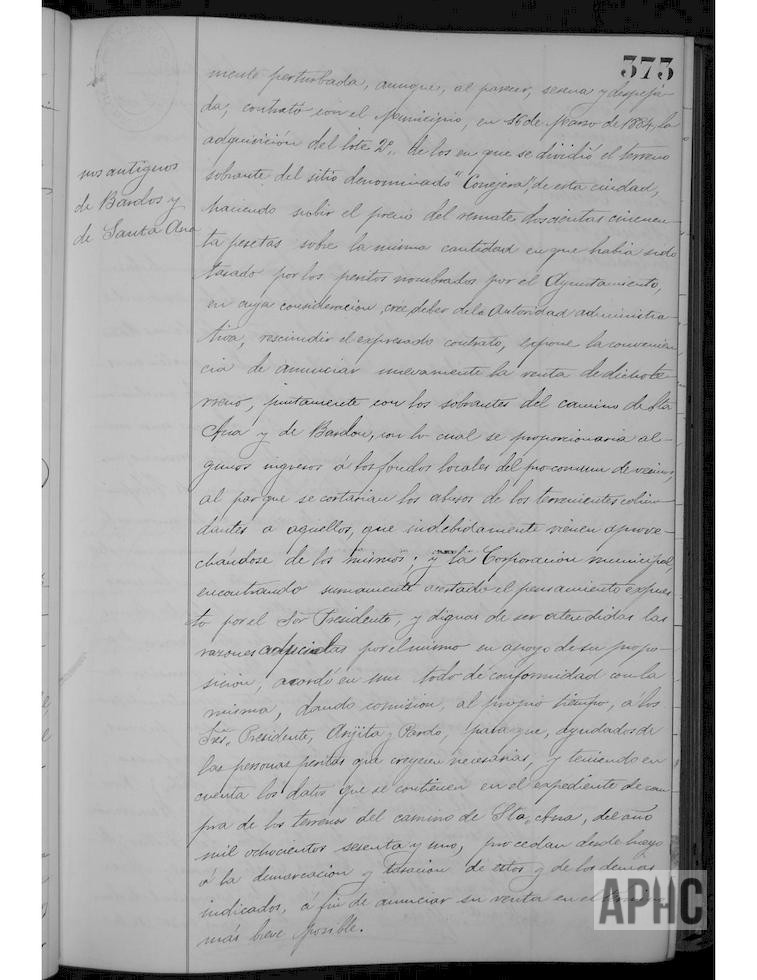 373
nos antiguos
de Bardos y
de Santa Ana
mente perturbada, aunque, al parecer, serena y despeja-
da, contrató con el Municipio, en 16 de Marzo de 1884, la
adquisición del lote 2º. de los en que se dividió el terreno
sobrante del sitio denominado "Conejera", de esta ciudad,
haciendo subir el precio del remate doscientas cincuen-
ta pesetas sobre la misma cantidad en que habia sido
tasado por los peritos nombrados por el Ayuntamiento,
en cuya consideracion, cree deber de la Autoridad administra-
tiva, rescindir el expresado contrato, expone la convenien-
cia de anunciar nuevamente la venta de dicho te-
rreno, juntamente con los sobrantes del camino de Sta
Ana y de Bardou, con lo cual se proporcionaria al-
gunos ingresos á los fondos locales del procomun de vecinos,
al par que se cortarian los abusos de los terrenientes colin-
dantes a aquellos, que indebidamente vienen aprove-
chándose de los mismos; y la Corporacion municipal,
encontrando sumamente acertado el pensamiento expues
to por el Sor Presidente, y dignas de ser atendidas las
razones aducidas por el mismo en apoyo de su propo-
sición, acordó en un todo de conformidad con la
misma, dando comision, al propio tiempo, á los
Sres. Presidente, Arijita y Pardo, para que, ayudados de
las personas peritas que creyeren necesarias, y teniendo en
cuenta los datos que se contienen en el expediente de com-
pra de los terrenos del camino de Sta. Ana, del año
mil ochocientos sesenta y uno, procedan desde luego
á la demarcacion y tasacion de estos y de los demas
indicados, á fin de anunciar su venta en el termino
más breve posible.
APHC